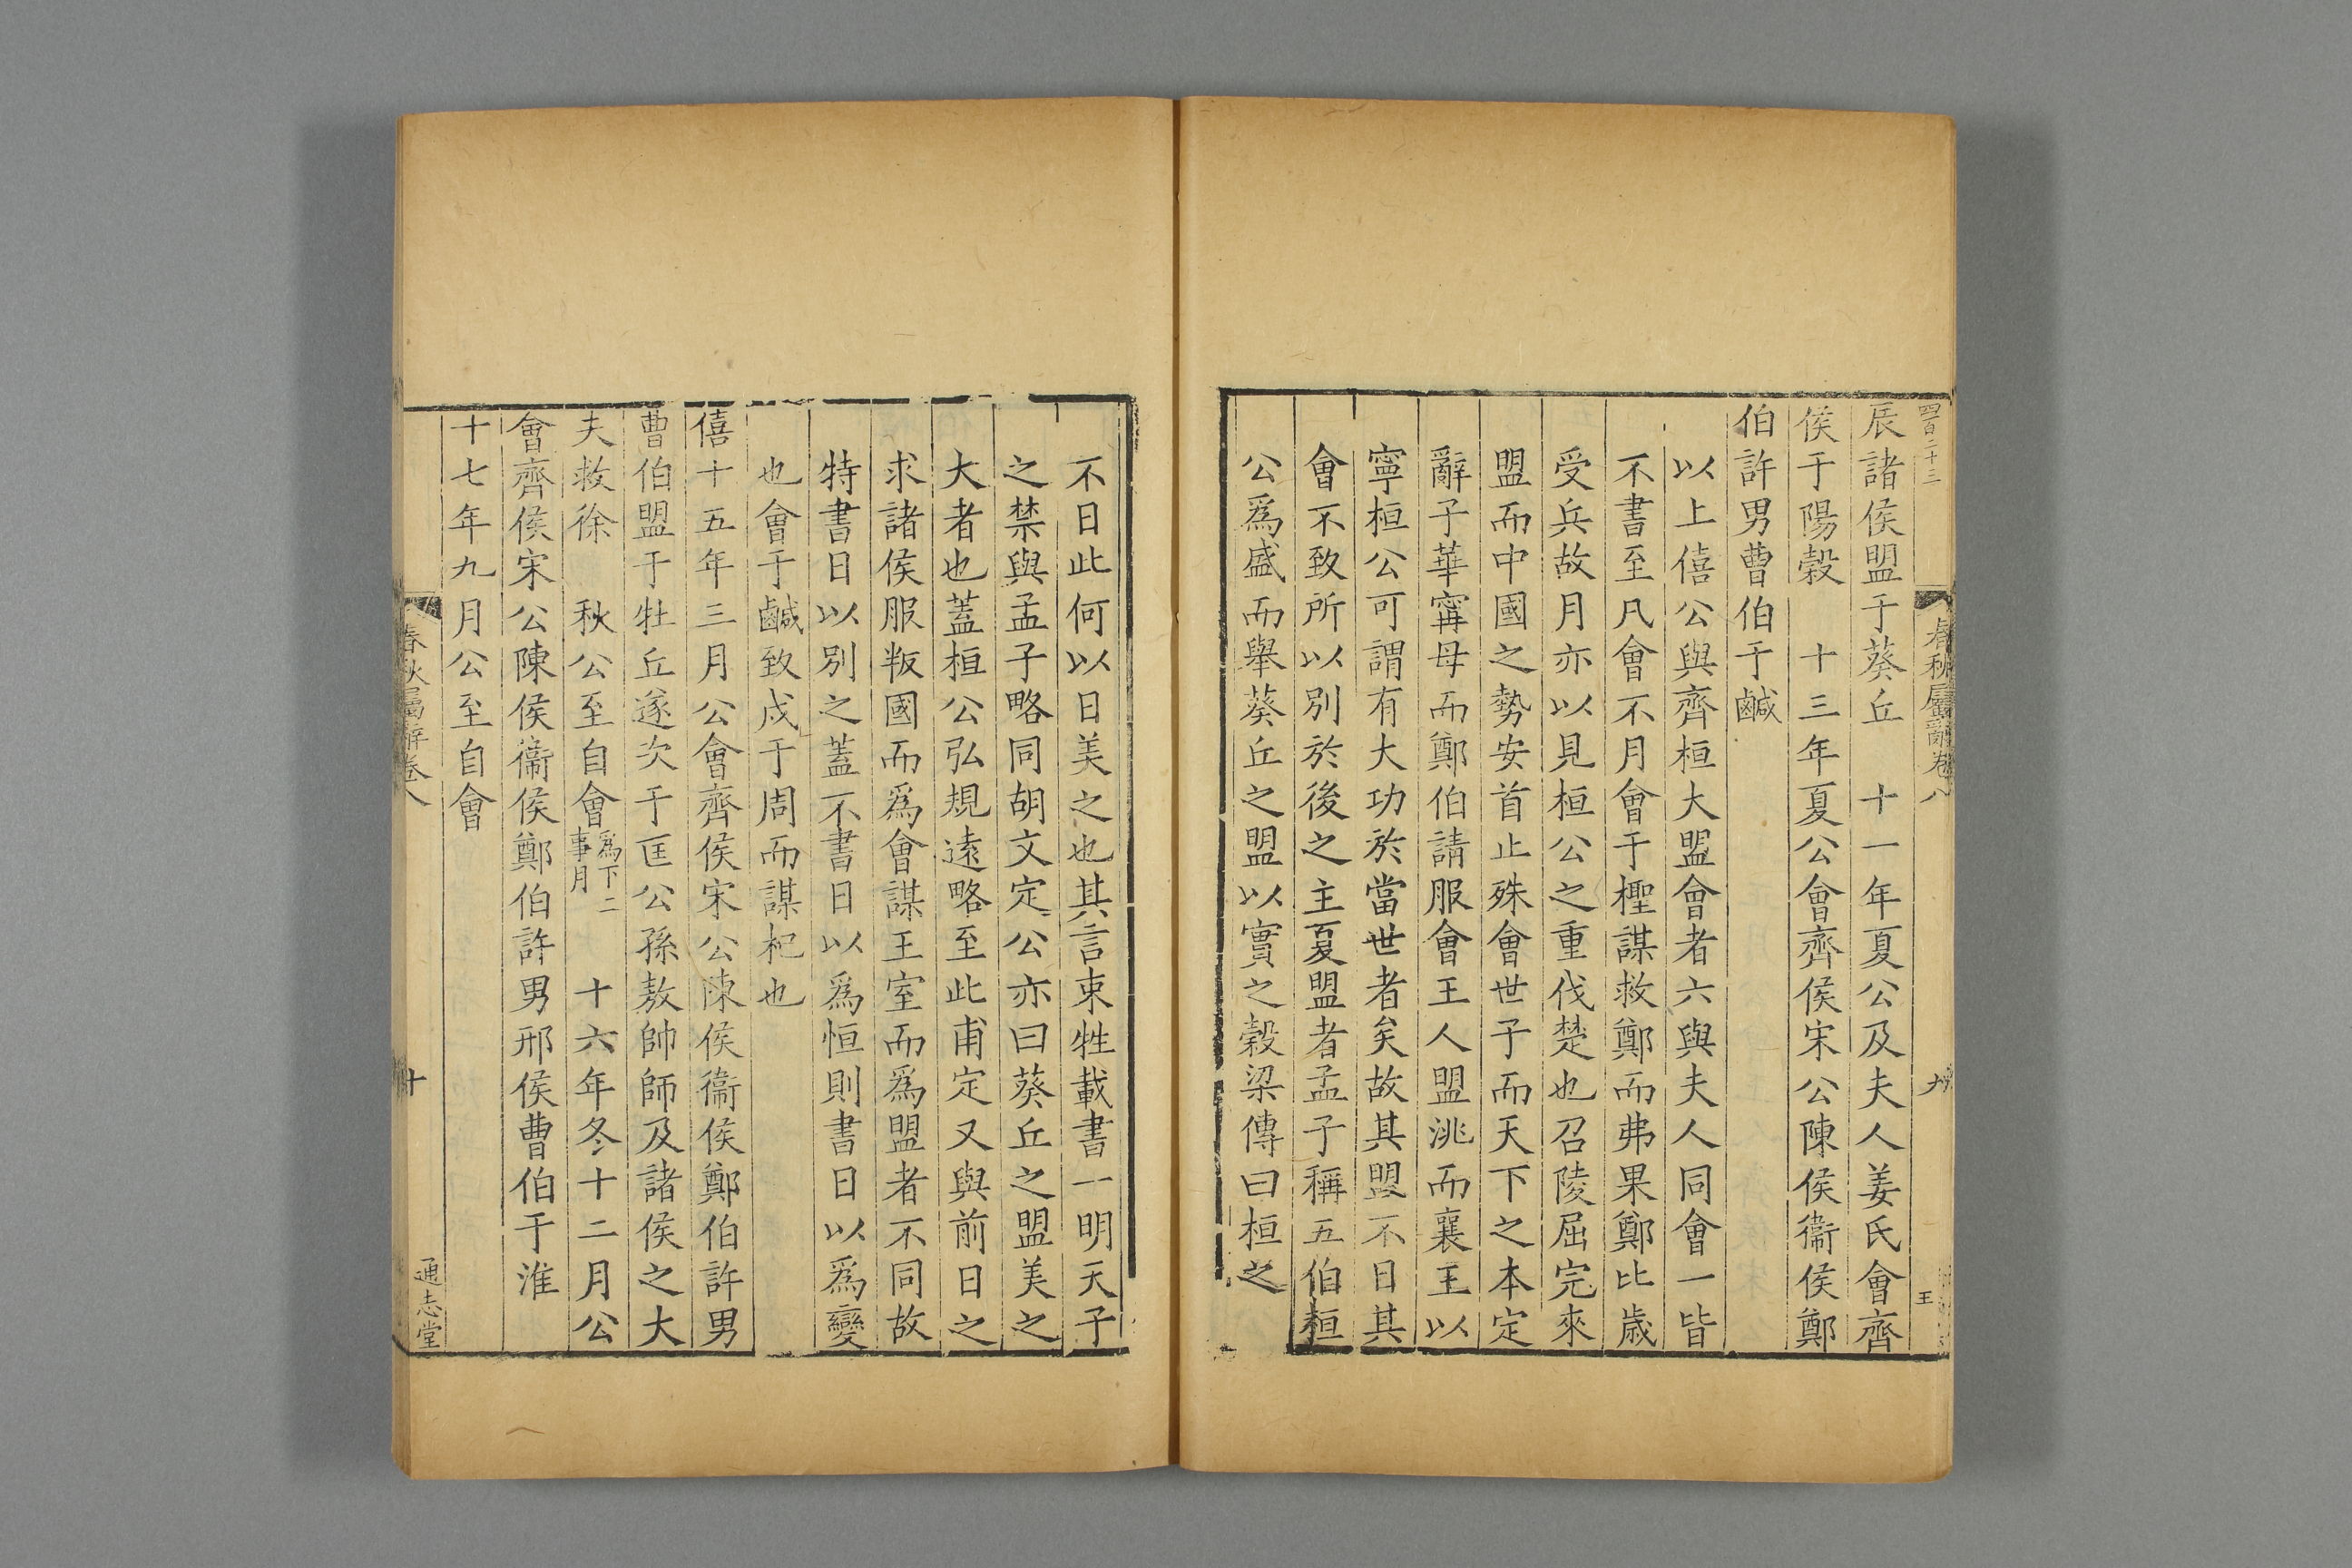 四百二十三
春秋屬辭卷八
九
王
辰諸侯盟于葵丘　十一年夏公及夫人姜氏會齊
侯于陽穀　十三年夏公會齊侯宋公陳侯衞侯鄭
伯許男曹伯于鹹
以上僖公與齊桓大盟會者六與夫人同會一皆
不書至凡會不月會于檉謀救鄭而弗果鄭比歲
受兵故月亦以見桓公之重伐楚也召陵屈完來
盟而中國之勢安首止殊會世子而天下之本定
辭子華甯母而鄭伯請服會王人盟洮而襄王以
寧桓公可謂有大功於當世者矣故其盟不日其
會不致所以別於後之主夏盟者孟子稱五伯桓
公爲盛而舉葵丘之盟以實之穀梁傳曰桓之
不日此何以日美之也其言束牲載書一明天子
之禁與孟子略同胡文定公亦曰葵丘之盟美之
大者也蓋桓公弘規遠略至此甫定又與前日之
求諸侯服叛國而爲會謀王室而爲盟者不同故
特書日以別之蓋不書日以爲恒則書日以爲變
也會于鹹致戍于周而謀杞也
僖十五年三月公會齊侯宋公陳侯衞侯鄭伯許男
曹伯盟于牡丘遂次于匡公孫敖帥師及諸侯之大
夫救徐　秋公至自會爲下二事月　十六年冬十二月公
會齊侯宋公陳侯衞侯鄭伯許男邢侯曹伯于淮
十七年九月公至自會
春秋屬辭卷八
十
通志堂